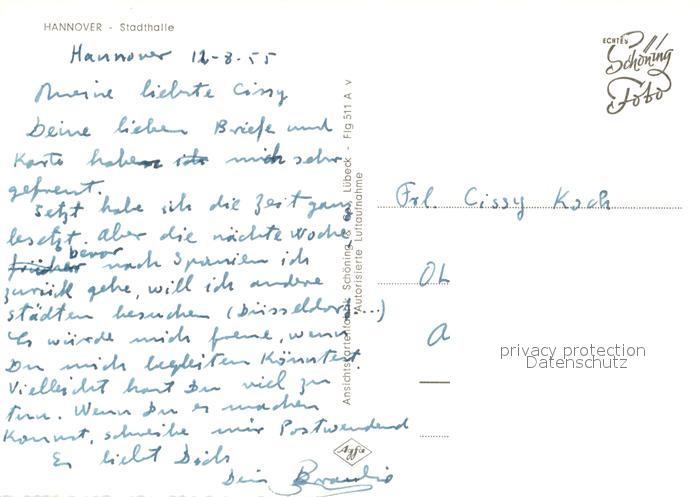 HANNOVER - Stadthalle
Hannover 12-8-55
Meine liebste Cissy
Deine lieben Briefe und
Karte haben ich mich sehr
gefreut.
Jetzt habe ich die Zeit ganz
besetzt. Aber die nächte Woche,
früher bevor nach Spanien ich
zurück gehe, will ich andere
städten besuchen (Düsseldorf...)
Es würde mich freue, wenn
Du mich begleiten Könntest.
Vielleicht hast Du viel zu
tun. Wenn Du es machen
Kannst, schreibe mir Postwendend
Es liebt Dich
Dein Braulio
Ansichtskartenfabrik Schöning & Co., Lübeck - Flg 511 A v
Autorisierte Luftaufnahme
Agfa
ECHTES
Schöning
Foto
Frl. Cissy Koch
OL
A
privacy protection
Datenschutz